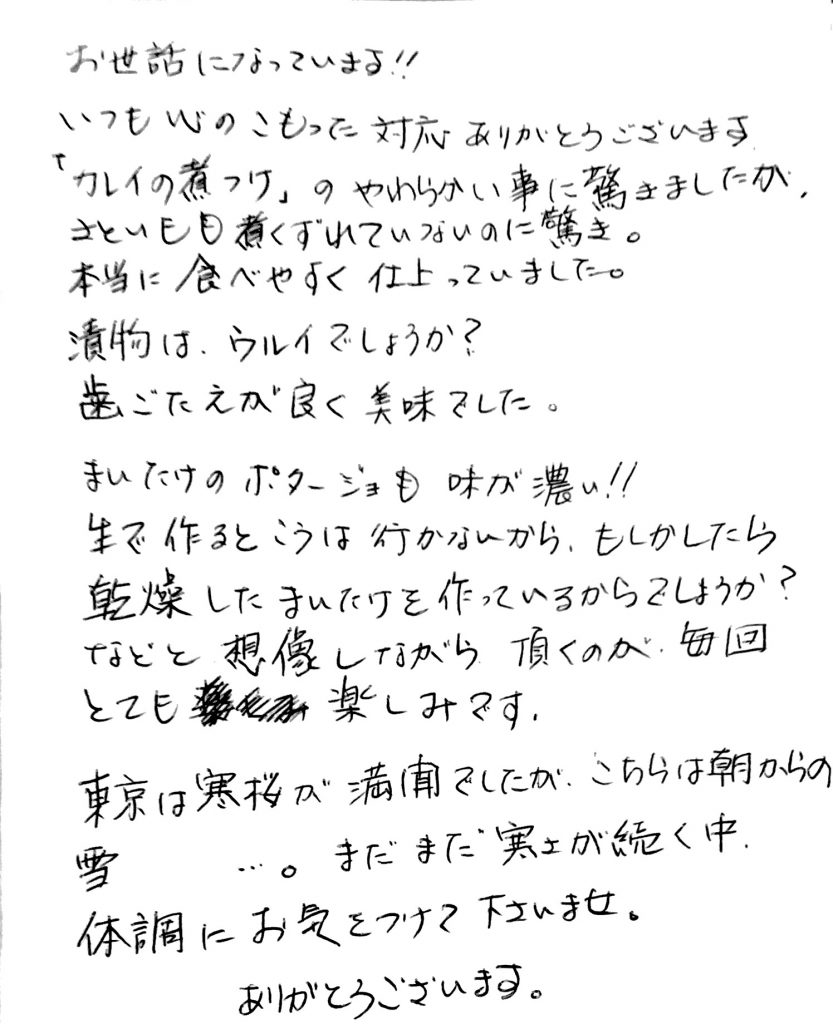 お世話になっています!!
いつも心のこもった対応ありがとうございます
「カレイの煮つけ」のやわらかい事に驚きましたが、
さといもも煮くずれていないのに驚き。
本当に食べやすく仕上っていました。
漬物は、ウルイでしょうか?
歯ごたえが良く美味でした。
まいたけのポタージュも味が濃い!!
生で作るとこうは行かないから、もしかしたら
乾燥したまいたけを作っているからでしょうか?
などと想像しながら頂くのが、毎回
とても楽しみです。
東京は寒桜が満開でしたが、こちらは朝からの
雪 …。まだまだ寒さが続く中、
体調にお気をつけて下さいませ。
ありがとうございます。